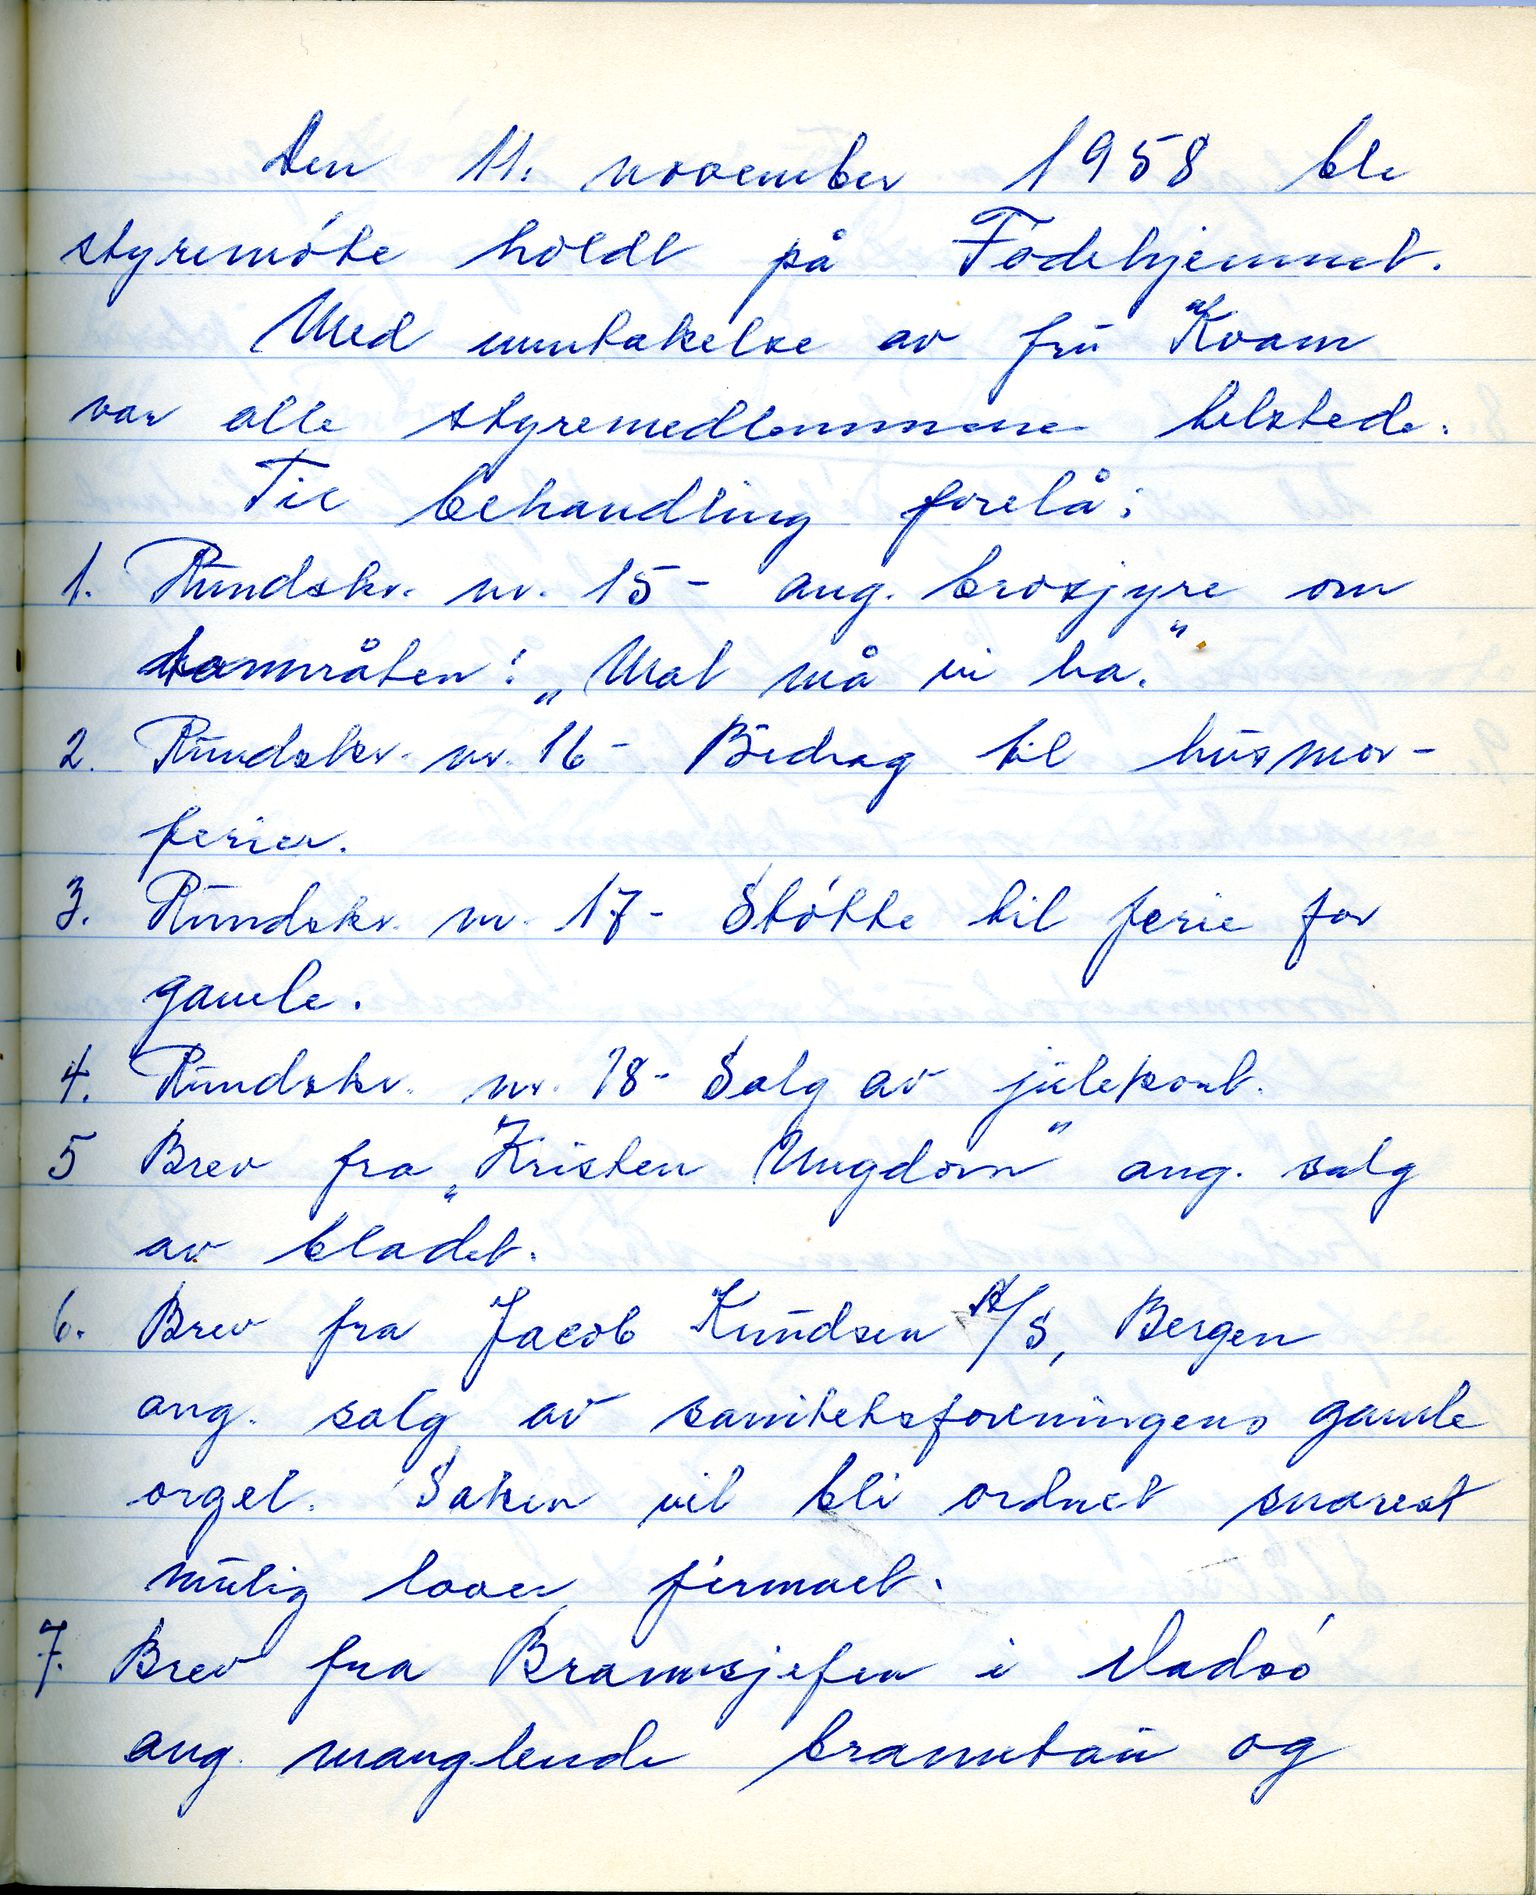 Den 11. november 1958 ble
styremøte holdt på Fødehjemmet.
Med unntakelse av frú Kvam
var alle styremedlemmene telstede.
Til behandling forelå:
1. Rundskr. nr. 15 - ang. brosjyre om
tannråten: „Mat må vi ha."
2. Rundskr. nr. 16 - Bidrag til husmor-
ferier.
3. Rundskr. nr. 17 - Støtte til ferie for
gamle.
4. Rundskr. nr. 18 - Salg av julekort.
5 Brev fra „Kristen Ungdom" ang. salg
av bladet.
6. Brev fra Jacob Knudsen A/S, Bergen
ang. salg av sanitetsforeningens gamle
orgel. Saken vil bli ordnet snarest
mulig lover firmaet.
7. Brev fra Brannsjefen i Vadsø
ang. manglende branntau og